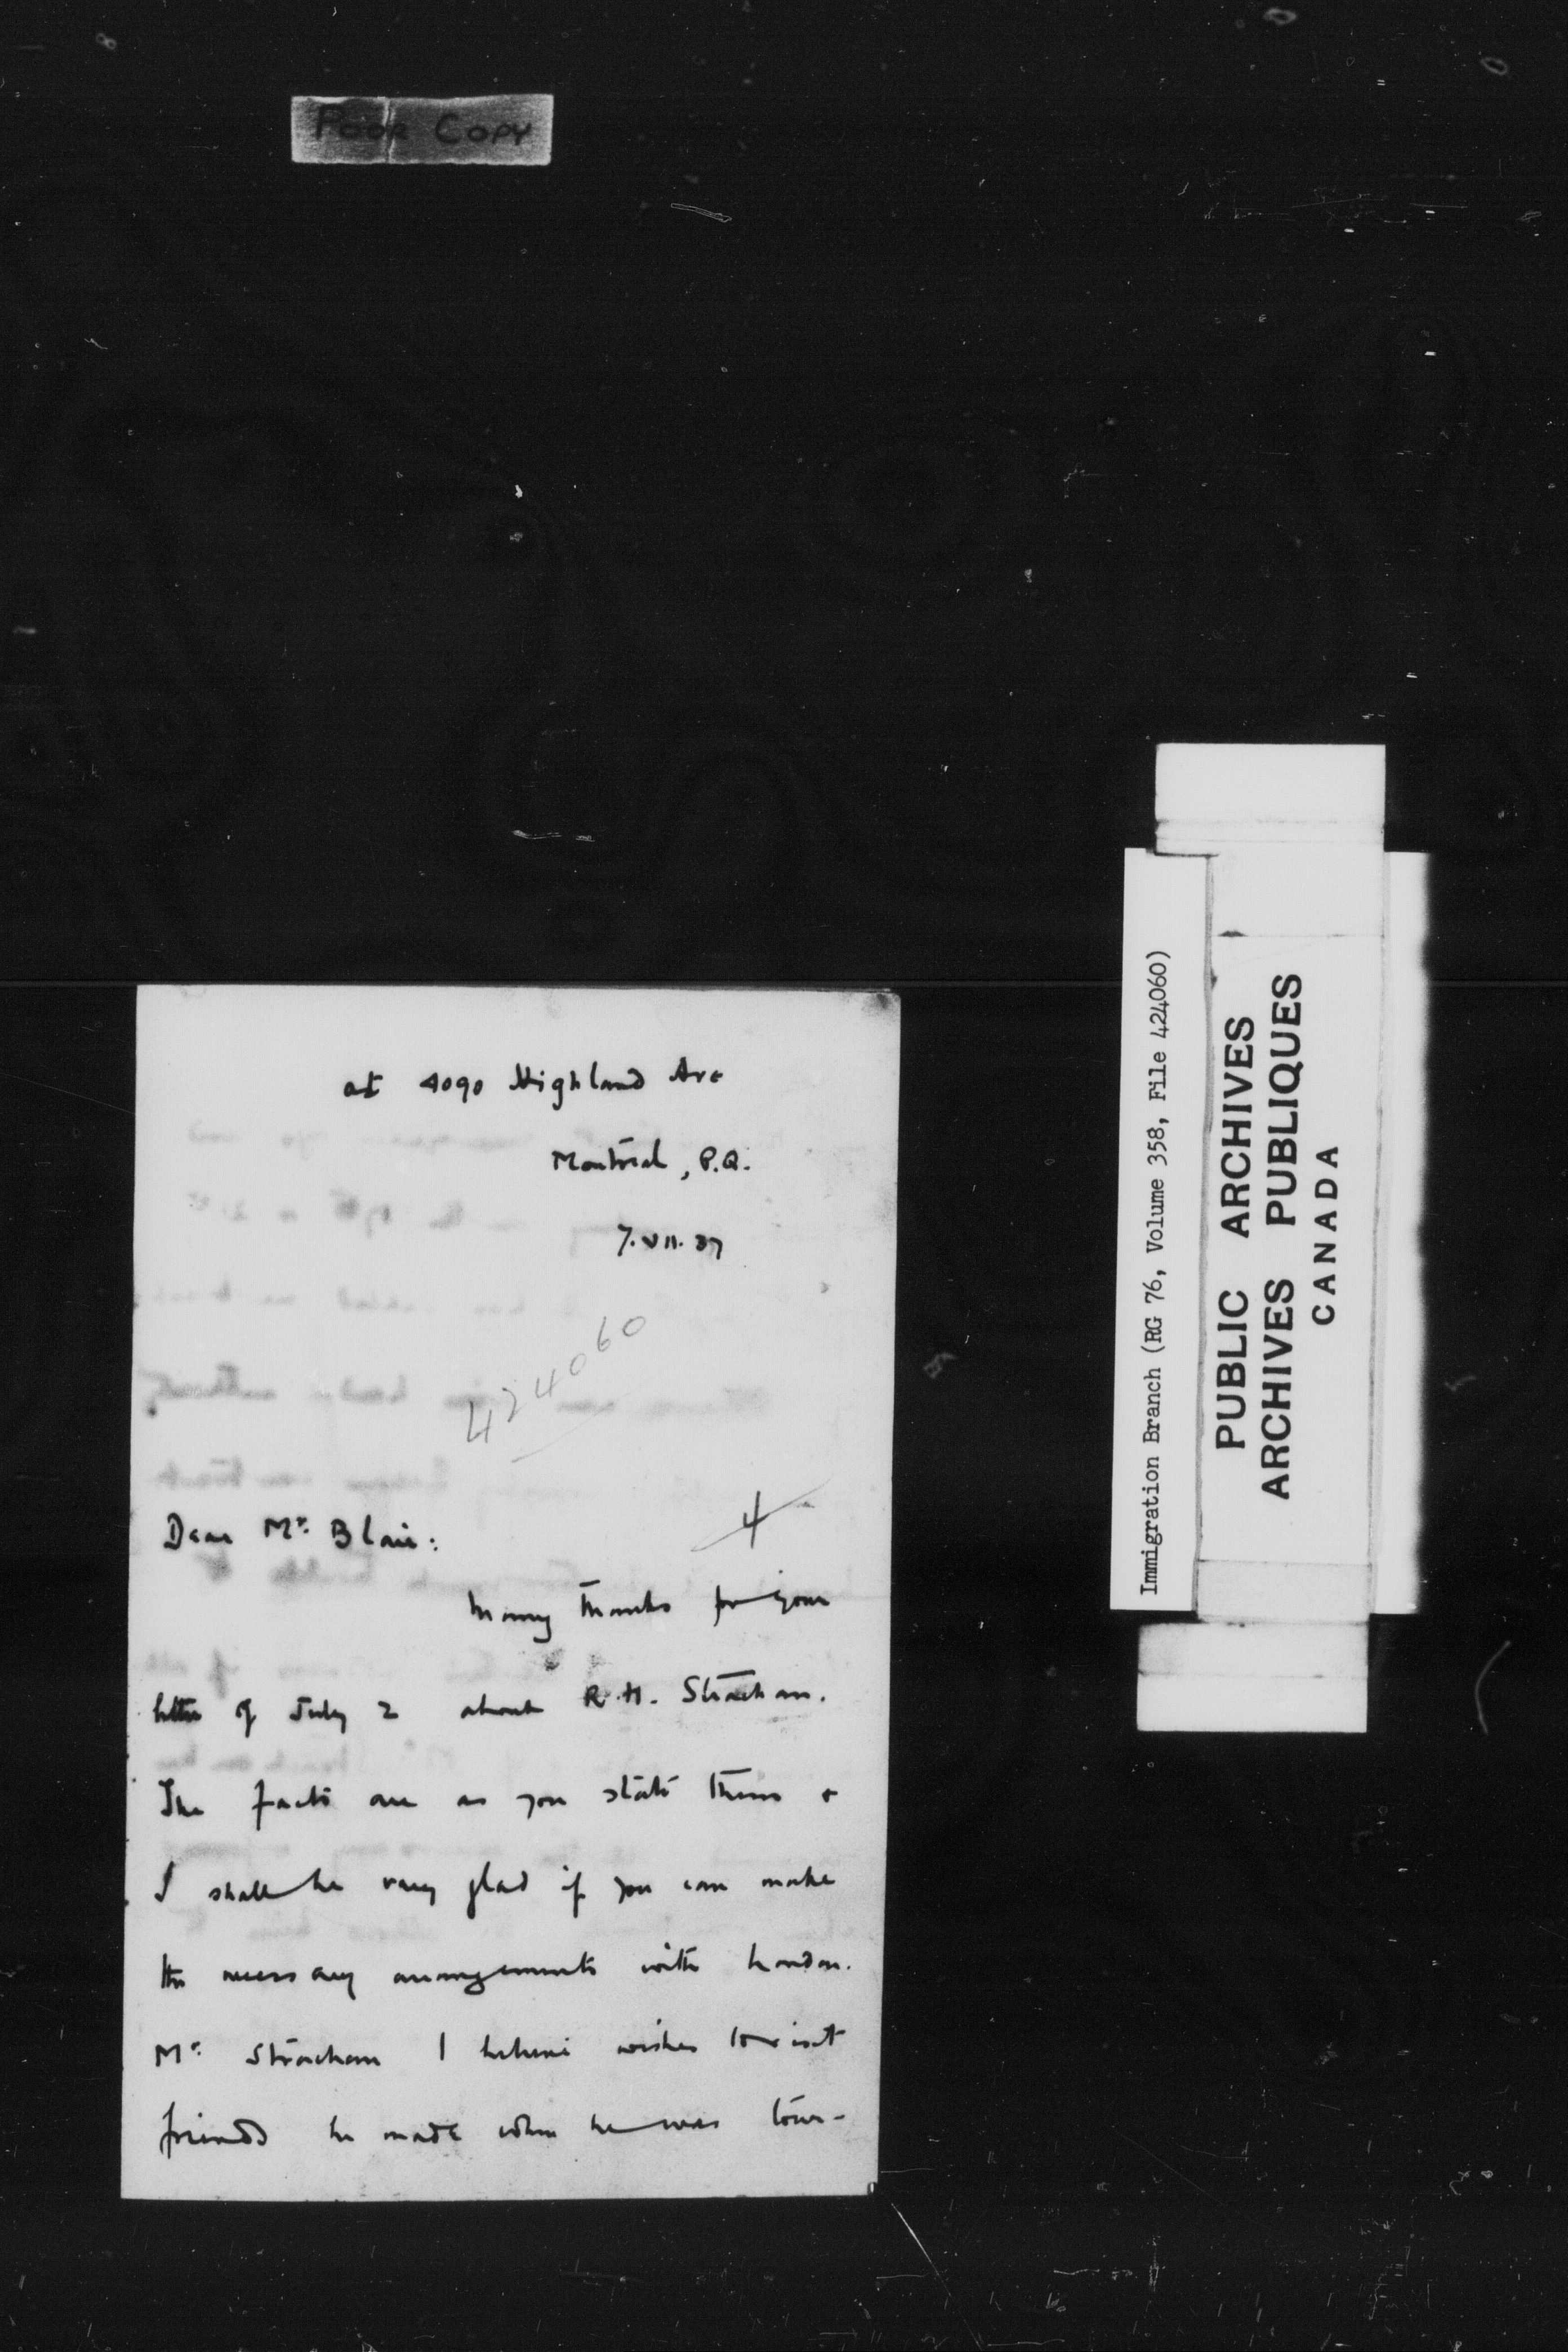 Poor Copy
at 4090 Highland Ave
Montreal, P.Q.
7.VII.37
424060
4
Dear Mr. Blair:
Many thanks for your
letter of July 2 about R.H. Strachan.
The facts are as you state them &
I shall be very glad if you can make
the necessary arrangements with London.
Mr. Strachan I believe wishes to visit
friends he made when he was tour-
Immigration Branch (RG 76, Volume 358, File 424060)
PUBLIC ARCHIVES
ARCHIVES PUBLIQUES
CANADA